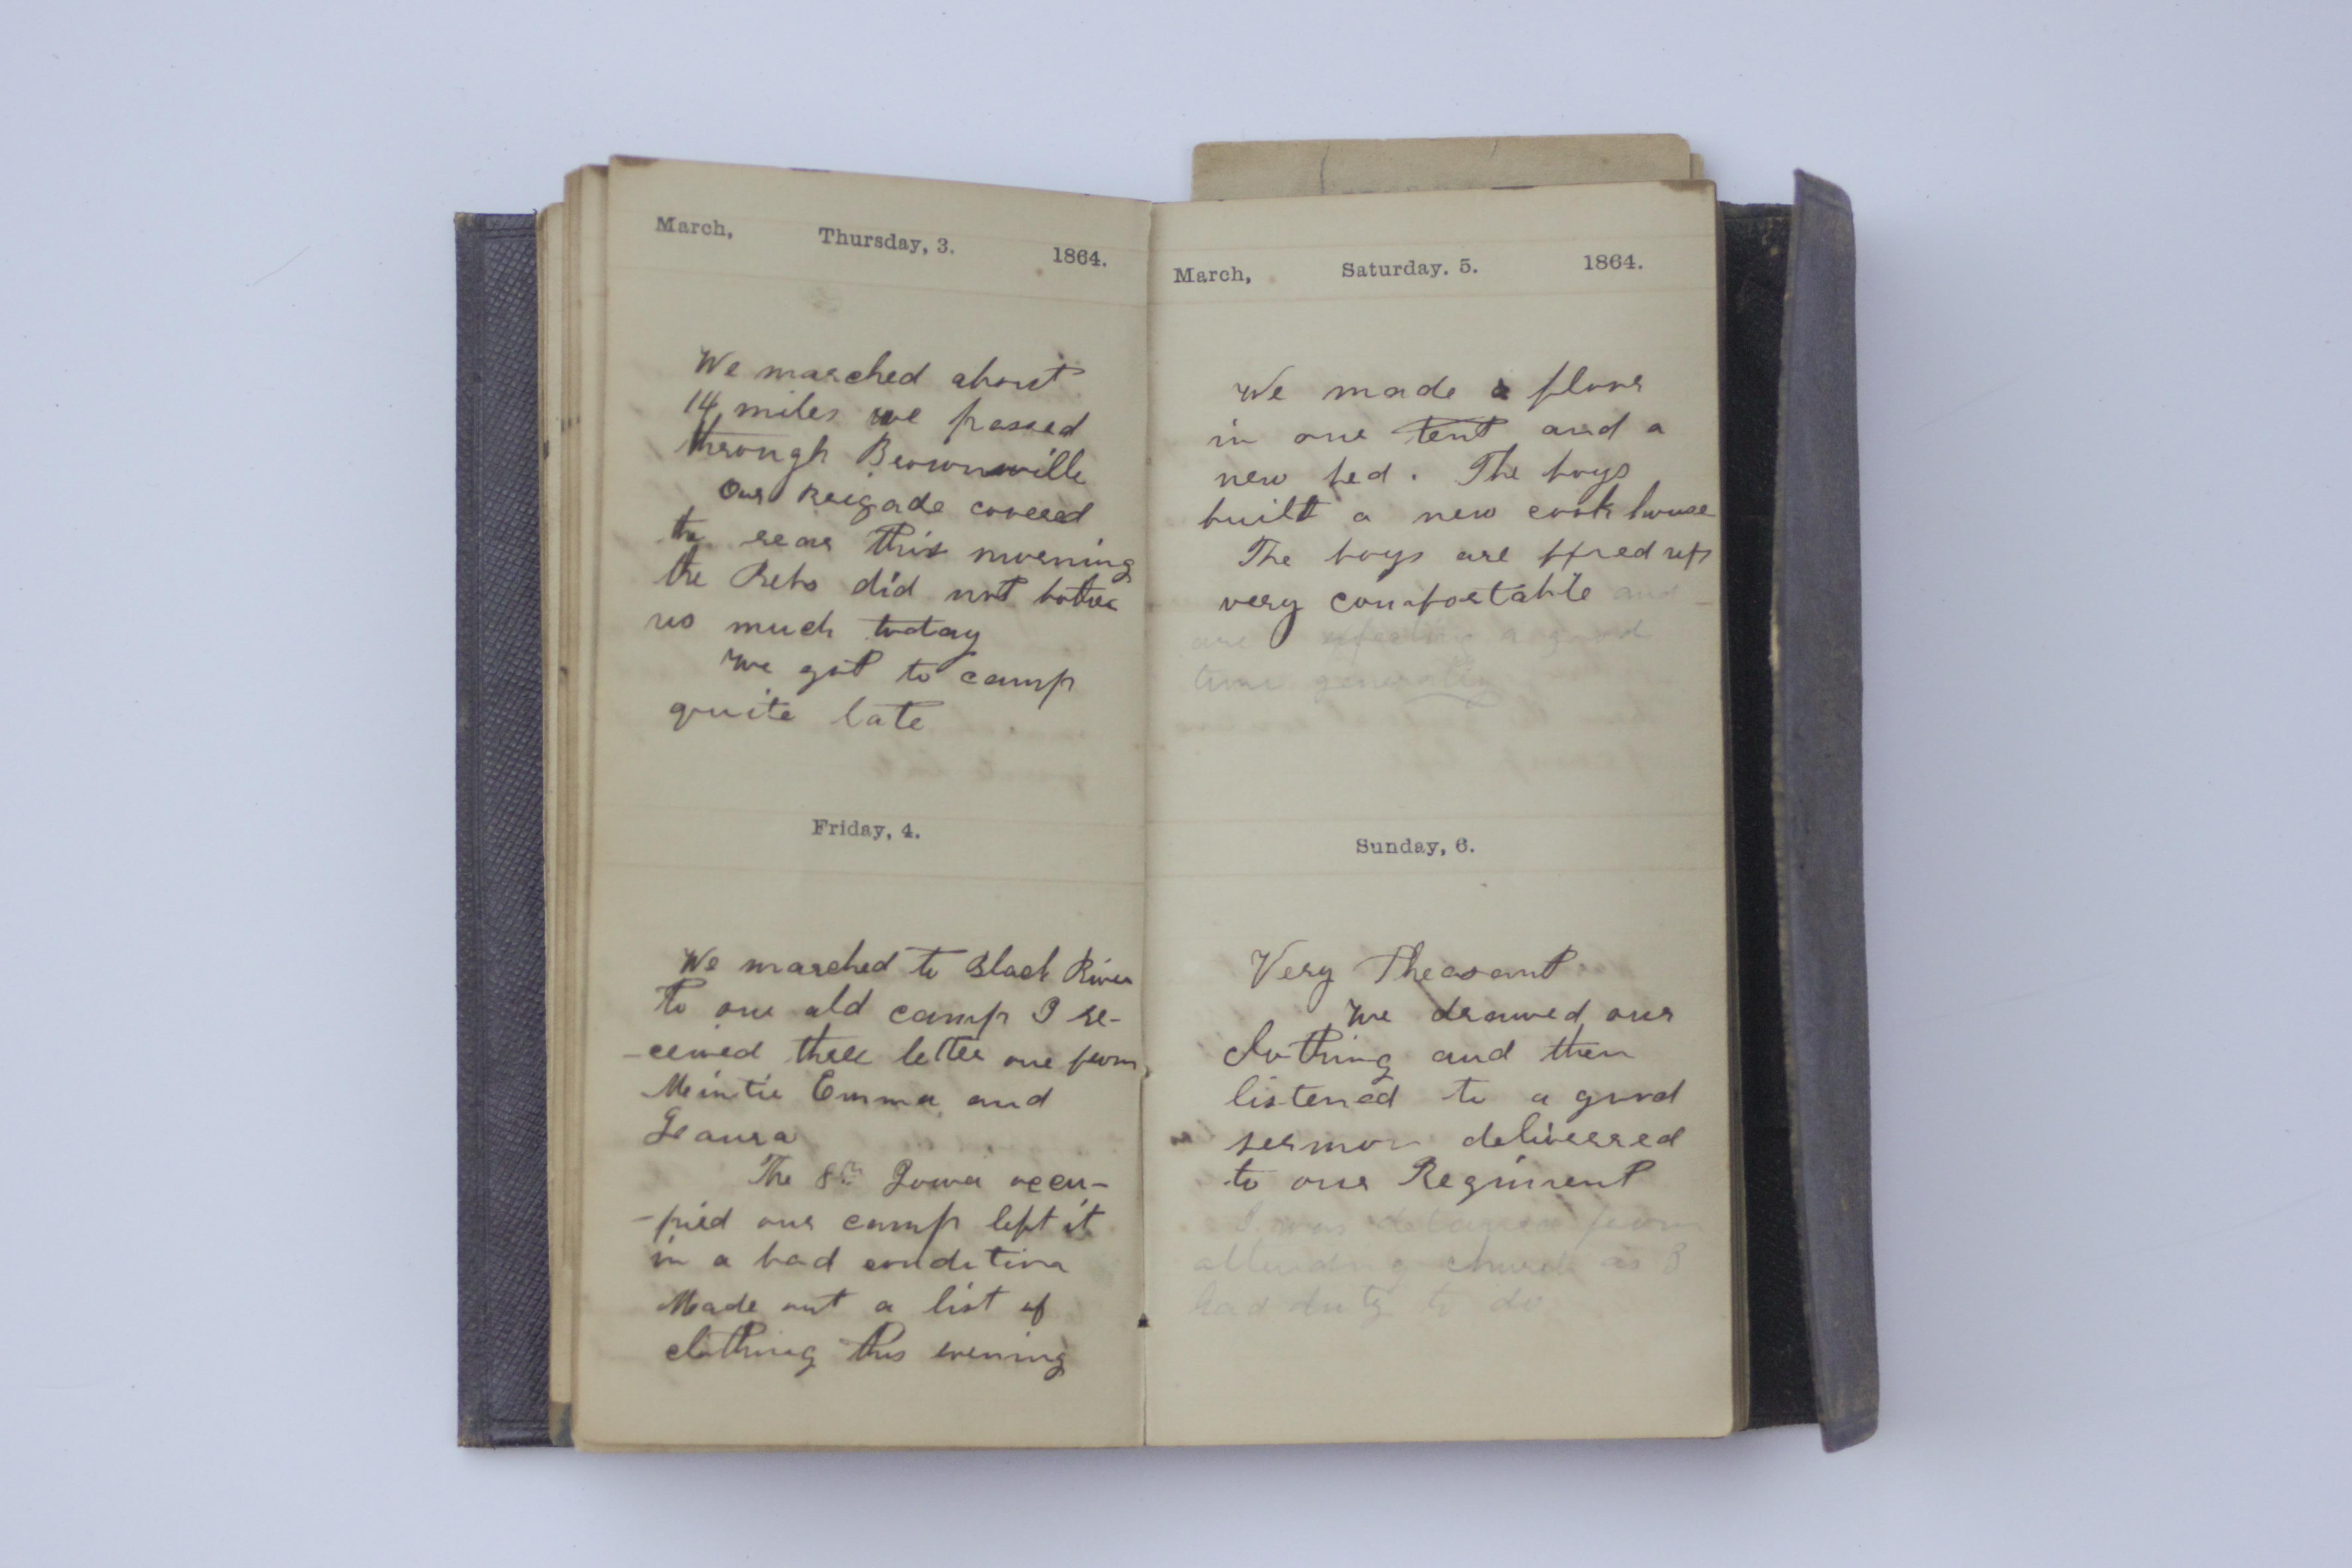 March, Thursday, 3. 1864.
We marched about
14 miles we passed
through Brownville
Our Breigade covered
the rear this morning
the Rebs did not bother
us much today
We got to camp
quite late
Friday, 4.
We marched to Black River
to our old camp I re-
-ceived three letter one from
Mintie Emma and
Laura
The 8th Iowa occu-
-pied our camp left it
in a bad condition
Made out a list of
clothing this evening
March, Saturday. 5. 1864.
We made a floor
in our tent and a
new bed. The boys
built a new cook house
The boys are fixed up
very comfortable and
are a good
time generally
Sunday, 6.
Very Pleasant
We drawed our
clothing and then
listened to a good
sermon deliverred
to our Regiment
I was from
attending church as I
had duty to do